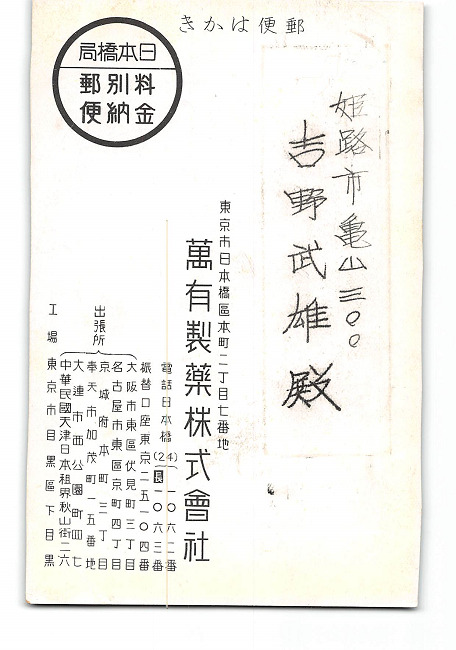 きかは便郵
局橋本日
郵別料
便納金
姫路市亀山三〇〇
吉野武雄殿
東京市日本橋區本町二丁目七番地
萬有製藥株式會社
電話日本橋(24)一〇六二番
長一〇六三番
振替口座東京二五一〇四番
出張所
大阪市東區伏見町三丁目
名古屋市東區京町四丁目
京城府本町三丁目
奉天市加茂町一五番地
大連市西公園町四七
中華民國天津日本租界秋山街二六
工場 東京市目黒區下目黒